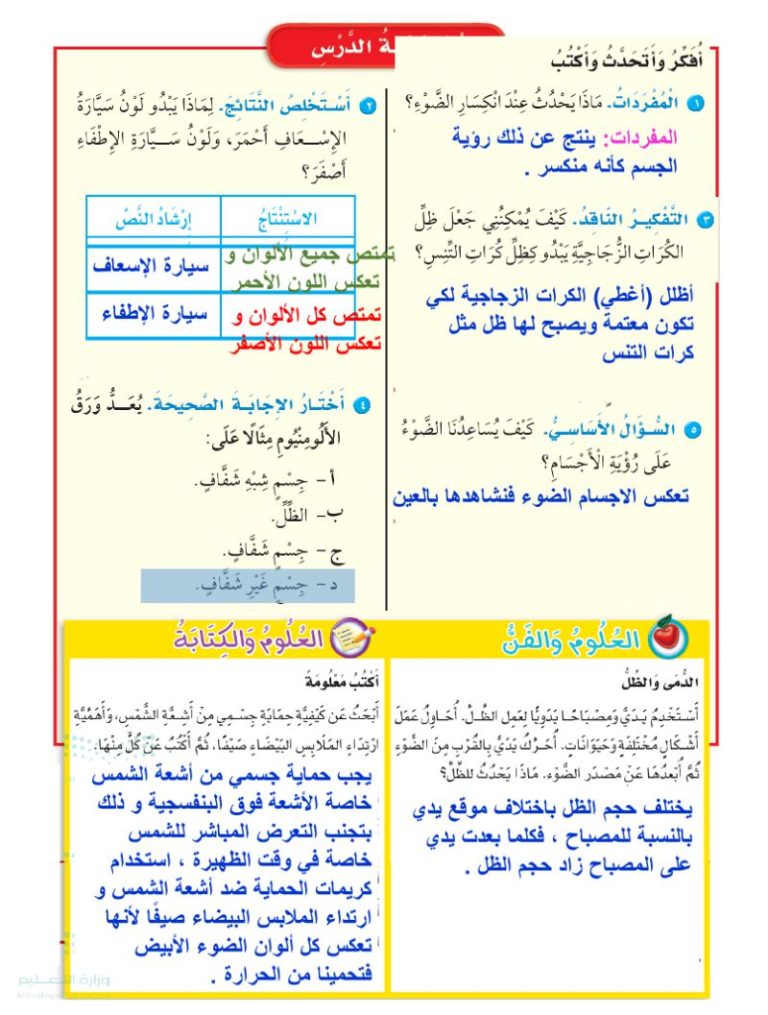 الدَّرْسِ
أُفَكِّرُ وَأَتَحَدَّثُ وَأَكْتُبُ
١ الْمُفْرَدَاتُ. مَاذَا يَحْدُثُ عِنْدَ انْكِسَارِ الضَّوْءِ؟
المفردات: ينتج عن ذلك رؤية
الجسم كأنه منكسر .
٣ التَّفْكِيرُ النَّاقِدُ. كَيْفَ يُمْكِنُنِي جَعْلَ ظِلِّ
الكُرَاتِ الزُّجَاجِيَّةِ يَبْدُو كَظِلِّ كُرَاتِ التِّنِسِ؟
أظلل (أغطي) الكرات الزجاجية لكي
تكون معتمة ويصبح لها ظل مثل
كرات التنس
٥ السُّؤَالُ الأَسَاسِيُّ. كَيْفَ يُسَاعِدُنَا الضَّوْءُ
عَلَى رُؤْيَةِ الْأَجْسَامِ؟
تعكس الاجسام الضوء فنشاهدها بالعين
٢ أَسْتَخْلِصُ النَّتَائِجَ. لِمَاذَا يَبْدُو لَوْنُ سَيَّارَةُ
الإِسْعَافِ أَحْمَرَ، وَلَوْنُ سَيَّارَةِ الإِطْفَاءِ
أَصْفَرَ؟
الاسْتِنْتَاجُ إِرْشَادُ النَّصِّ
تمتص جميع الألوان و سيارة الإسعاف
تعكس اللون الأحمر
تمتص كل الألوان و سيارة الإطفاء
تعكس اللون الأصفر
٤ أَخْتَارُ الإِجَابَةَ الصَّحِيحَةَ. يُعَدُّ وَرَقُ
الأَلُومِنْيُومِ مِثَالًا عَلَى:
أ- جِسْمٍ شِبْهِ شَفَّافٍ.
ب- الظِّلِّ.
ج- جِسْمٍ شَفَّافٍ.
د- جِسْمٍ غَيْرِ شَفَّافٍ.
العُلُومُ وَالفَنُّ
الدُّمَى وَالظِّلُّ
أَسْتَخْدِمُ يَدَيَّ وَمِصْبَاحًا يَدَوِيًّا لِعَمِلِ الظِّلِّ. أُحَاوِلُ عَمَلَ
أَشْكَالٍ مُخْتَلِفَةٍ وَحَيَوَانَاتٍ. أُحَرِّكُ يَدَيَّ بِالقُرْبِ مِنَ الضَّوْءِ
ثُمَّ أُبْعِدُهَا عَنْ مَصْدَرِ الضَّوْءِ. مَاذَا يَحْدُثُ لِلظِّلِّ؟
يختلف حجم الظل باختلاف موقع يدي
بالنسبة للمصباح ، فكلما بعدت يدي
على المصباح زاد حجم الظل .
العُلُومُ وَالكِتَابَةُ
أَكْتُبُ مَعْلُومَةً
أَبْحَثُ عَنْ كَيْفِيَّةِ حِمَايَةِ جِسْمِي مِنْ أَشِعَّةِ الشَّمْسِ، وَأَهَمِّيَّةِ
ارْتِدَاءِ المَلَابِسِ البَيْضَاءِ صَيْفًا. ثُمَّ أَكْتُبُ عَنْ كُلٍّ مِنْهَا.
يجب حماية جسمي من أشعة الشمس
خاصة الأشعة فوق البنفسجية و ذلك
بتجنب التعرض المباشر للشمس
خاصة في وقت الظهيرة ، استخدام
كريمات الحماية ضد أشعة الشمس و
ارتداء الملابس البيضاء صيفًا لأنها
تعكس كل ألوان الضوء الأبيض
فتحمينا من الحرارة .
وزارة التعليم